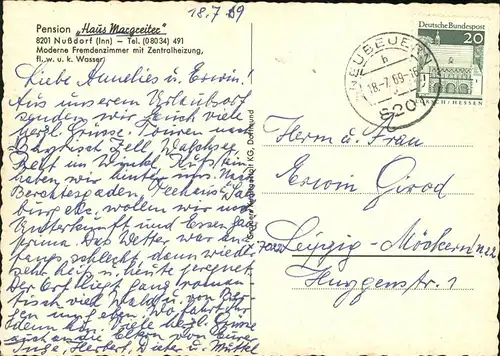 18.7.69
Pension „Haus Margreiter"
8201 Nußdorf (Inn) — Tel. (08034) 491
Moderne Fremdenzimmer mit Zentralheizung,
fl. w. u. k. Wasser
Liebe Annelies u. Erwin!
Aus unserem Urlaubsort
senden wir Euch viele
herzl. Grüsse. Touren nach
Bayrisch Zell,
Reit im Winkl, Kufstein
haben wir hinter uns. Nach
Berchtesgaden,
burg etc. wollen wir noch
Unterkunft und Essen ganz
prima. Das Wetter war an-
fangs schlecht, dann wieder
sehr heiß u. heute regnet
Der Ort liegt ganz roman-
tisch viel Wald u. von Ber-
gen umgeben.
Viele herzl. Grüsse
auch an die Eltern von Eurer
Inge, Herbert, Dieter u. Mutti
NEUBEUERN
b
18.-7.69-16
820
Deutsche Bundespost
20
LORSCH/HESSEN
Herrn u. Frau
Erwin Girod
7022 Leipzig-Möckern N22
Huggenstr. 1